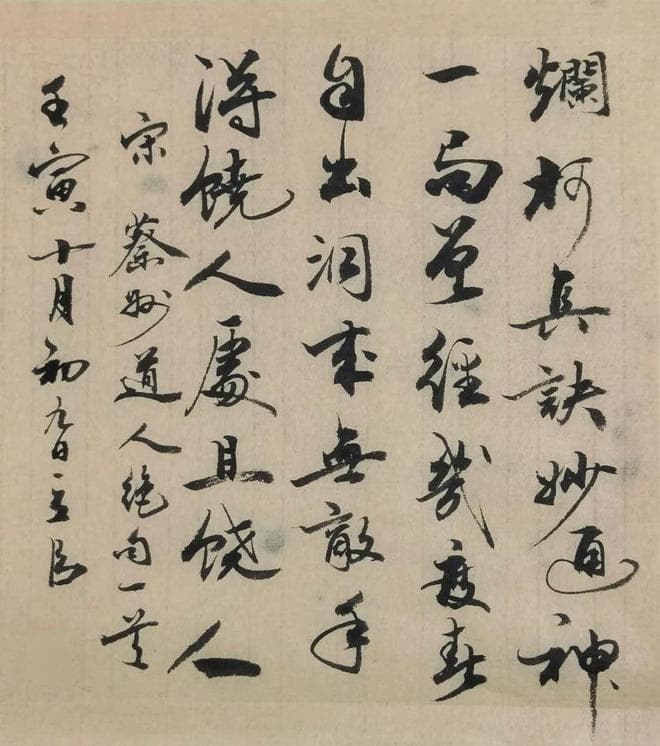 爛柯真訣妙通神
一局曾經幾度春
自出洞來無敵手
得饒人處且饒人
宋蔡州道人絕句一首
壬寅十月初九日